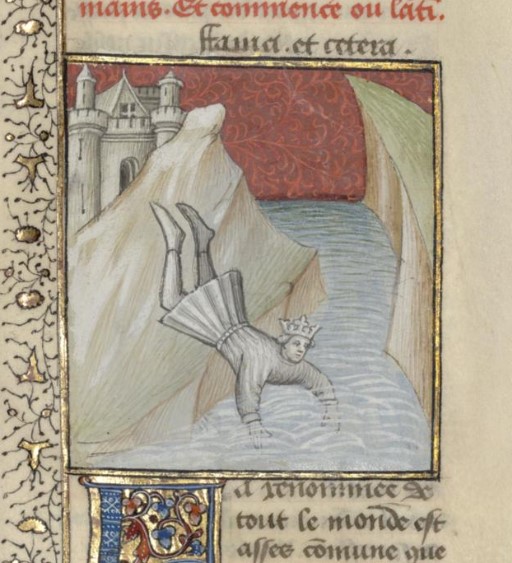 mains. Et commence ou lati.
et cetera.
La renommee de
tout le monde est
asses cōmune que